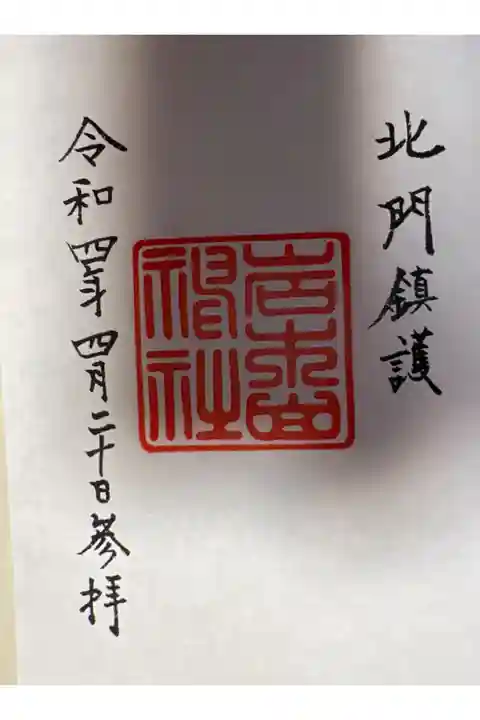 北門鎮護
岩木山
神社
令和四年四月二十日参拝